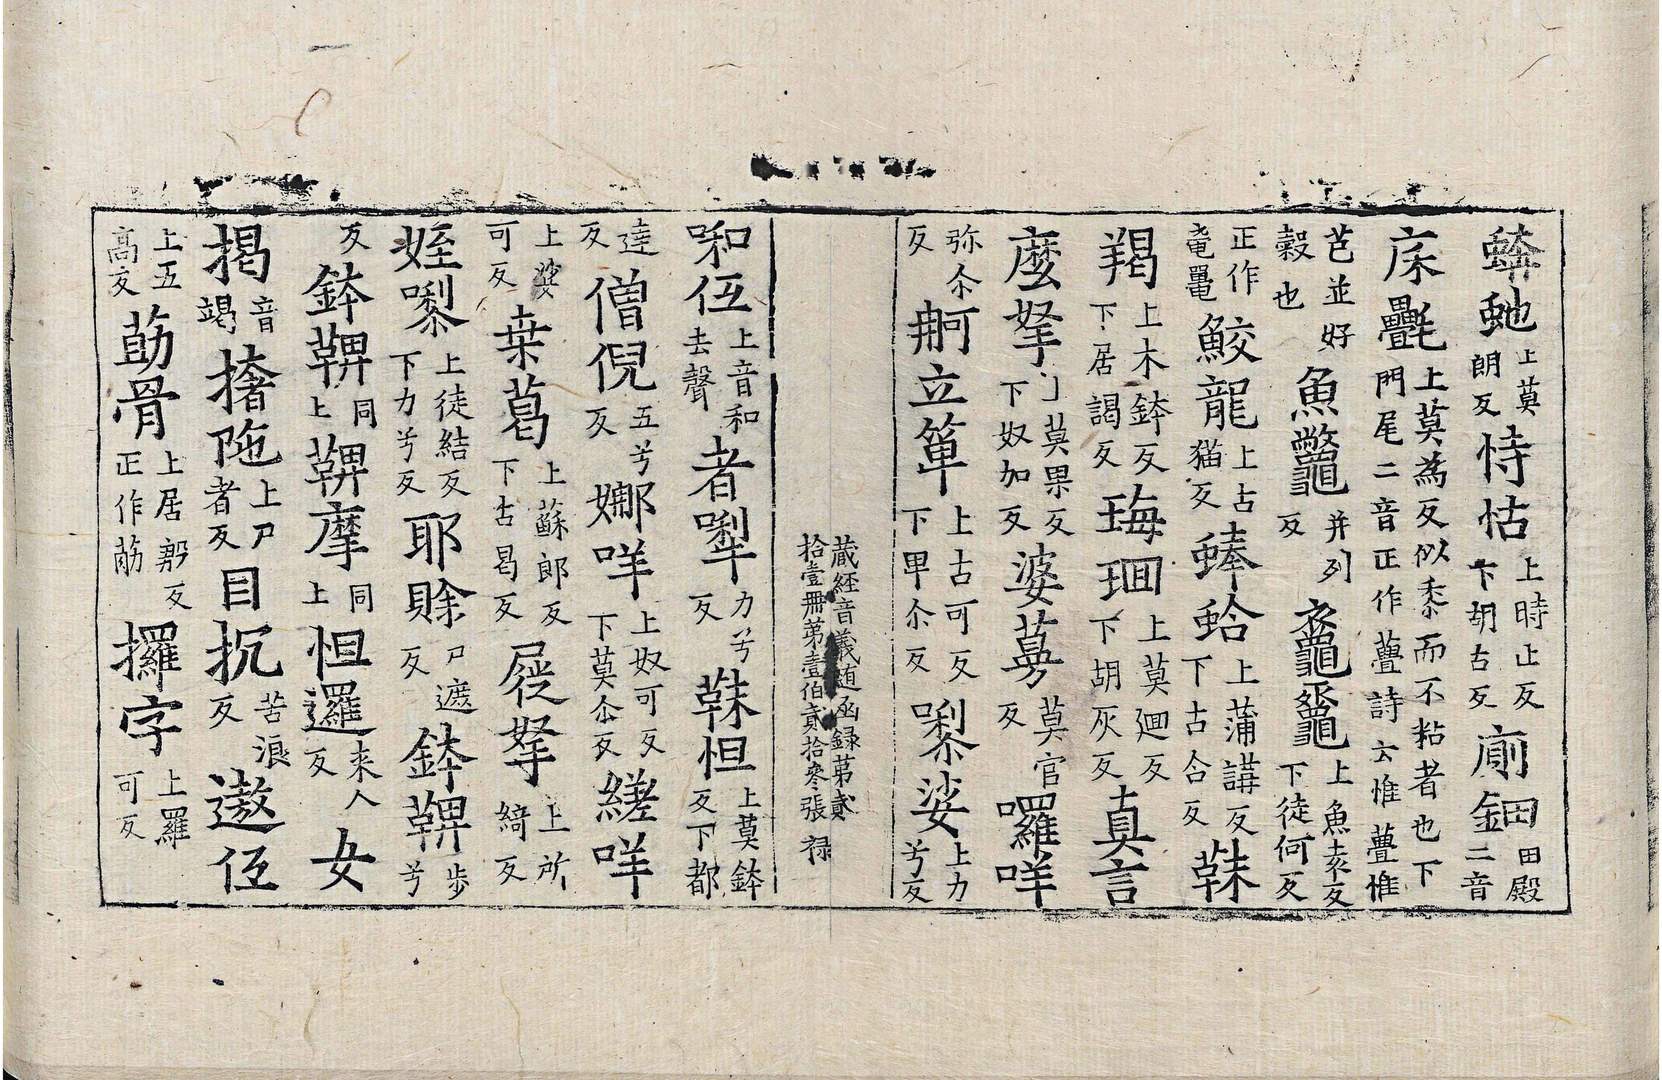 蟒虵上莫朗反恃怙上時止反下胡古反廁鈿田殿二音
床㲲上莫為反似黍而不粘者也下門尾二音正作亹詩云惟亹惟
芑並好穀也魚鼈并列反黿鼉上魚袁反下徒何反
正作黿鼉鮫龍上古猫反蜯蛤上蒲講反下古合反靺
羯上木鉢反下居謁反珻琄上莫迴反下胡灰反真言
麼拏上莫果反下奴加反婆蓦莫官反囉咩
弥尒反舸立箄上古可反下甲尒反㗚娑上力兮反
藏經音義随函録第貳拾壹冊第壹伯貳拾叅張 禄
啝伍上音和去聲者犁力兮反靺怛上莫鉢反下都
達反僧倪五兮反娜咩上奴可反下莫尒反縒咩
上娑可反桒葛上蘇郎反下古曷反屣拏上所綺反
姪㗚上徒結反下力兮反耶賖尸遮反鉢鞞步兮
反鉢鞞同上鞞摩同上怛邏来人反女
揭音竭撦陁上尸者反目抁苦浪反遨伍
上五高反葝骨上居𣃔反正作䈥攞字上羅可反